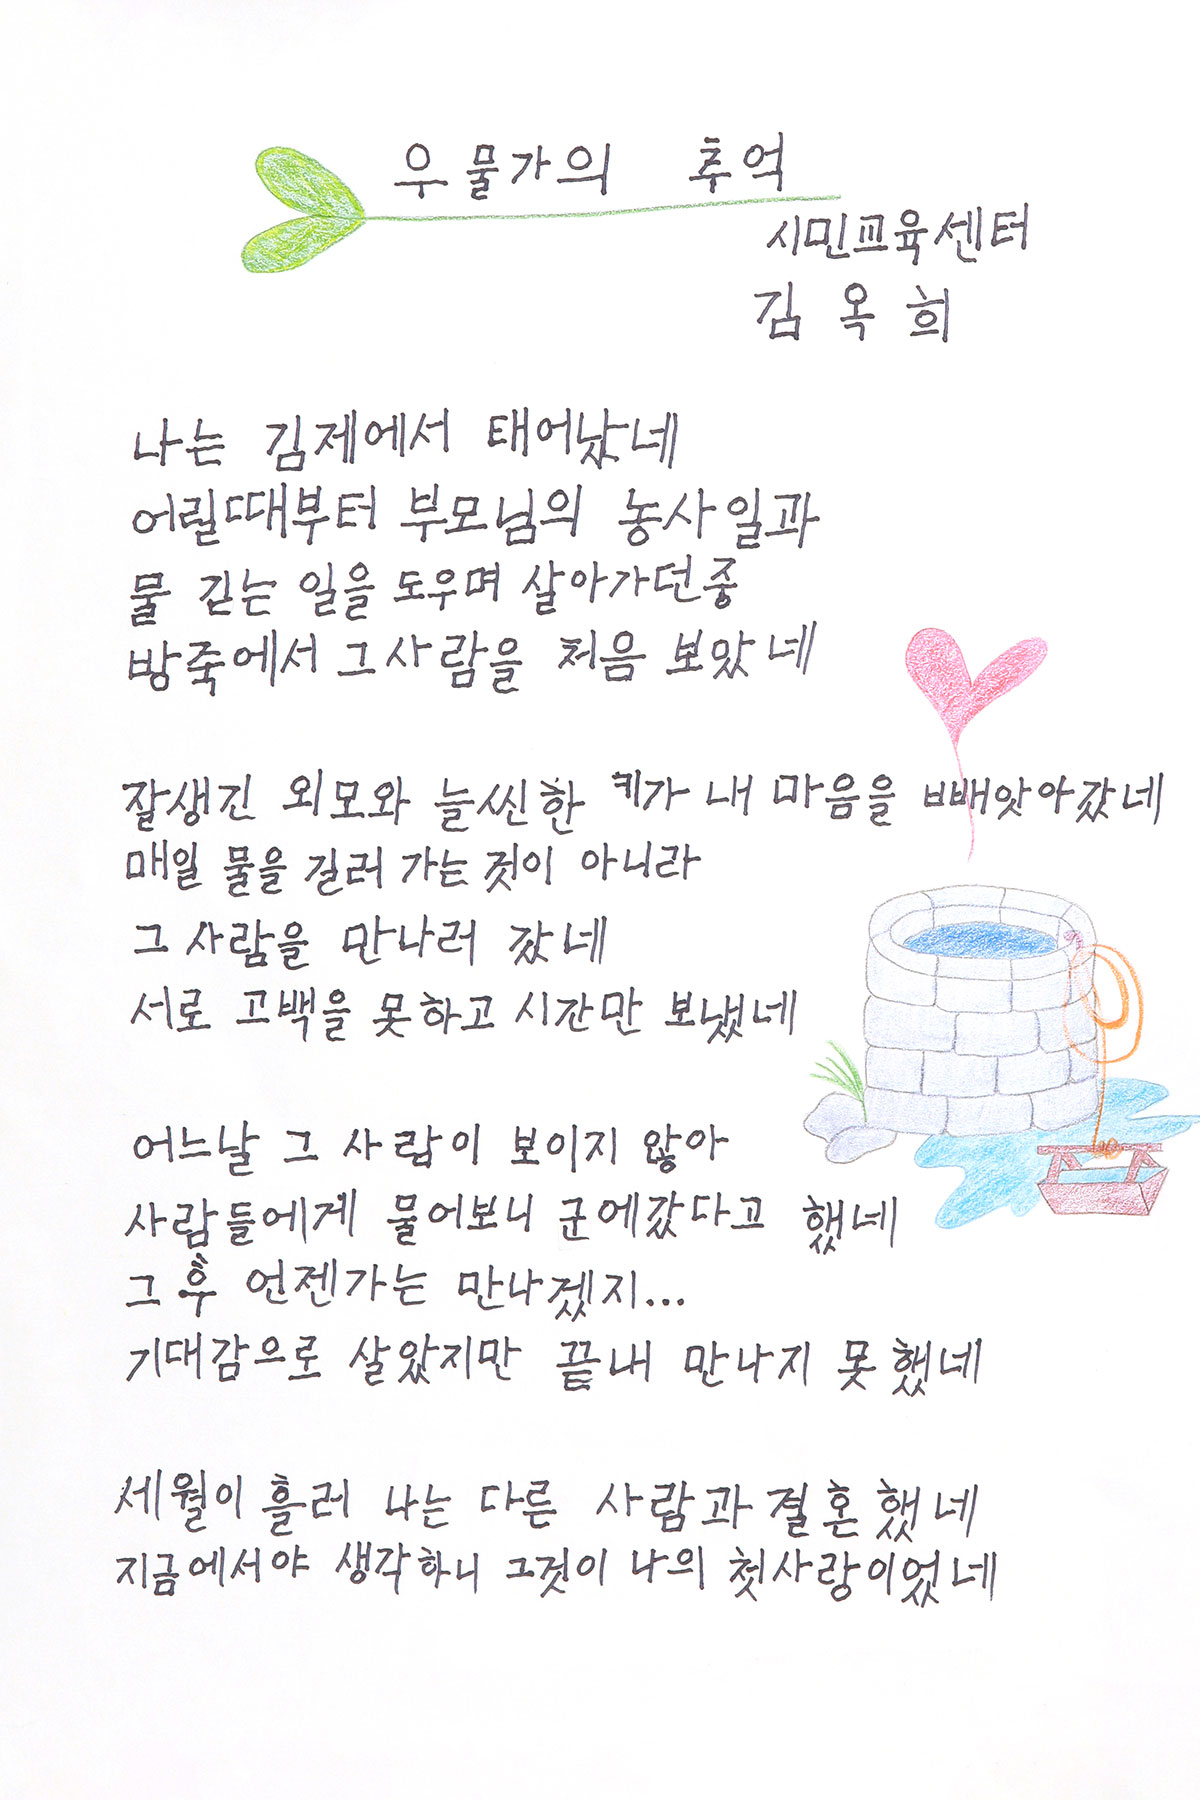 우물가의 추억
시민교육센터
김옥희
나는 김제에서 태어났네
어릴때부터 부모님의 농사일과
물 긷는 일을 도우며 살아가던중
방죽에서 그사람을 처음 보았네
잘생긴 외모와 늘씬한 키가 내 마음을 빼앗아갔네
매일 물을 길러 가는 것이 아니라
그 사람을 만나러 갔네
서로 고백을 못하고 시간만 보냈네
어느날 그 사람이 보이지 않아
사람들에게 물어보니 군에갔다고 했네
그 후 언젠가는 만나겠지...
기대감으로 살았지만 끝내 만나지 못했네
세월이 흘러 나는 다른 사람과 결혼했네
지금에서야 생각하니 그것이 나의 첫사랑이었네